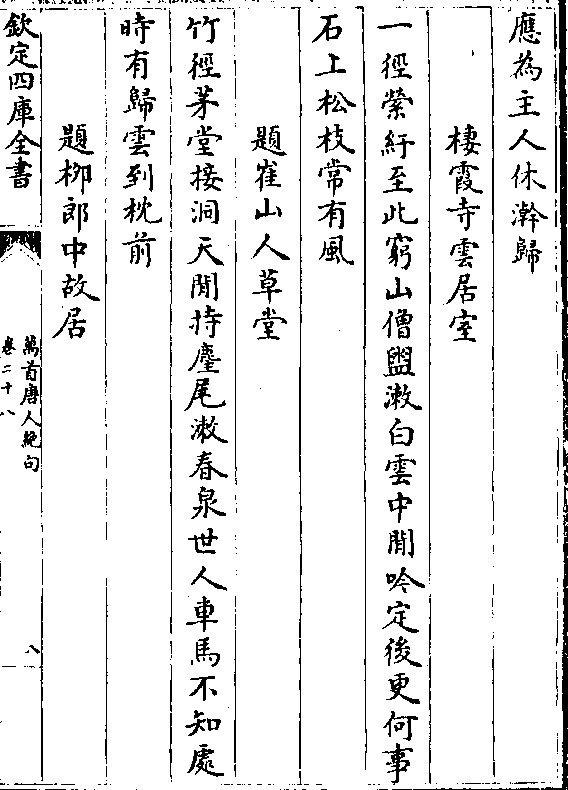 應為主人休澣歸
棲霞寺雲居室
一徑縈紆至此窮山僧盥漱白雲中閒吟定後更何事
石上松枝常有風
題崔山人草堂
竹徑茅堂接洞天閒持麈尾漱春泉世人車馬不知處
時有歸雲到枕前
題柳郎中故居
欽定四庫全書
萬首唐人絶句
卷二十八
八